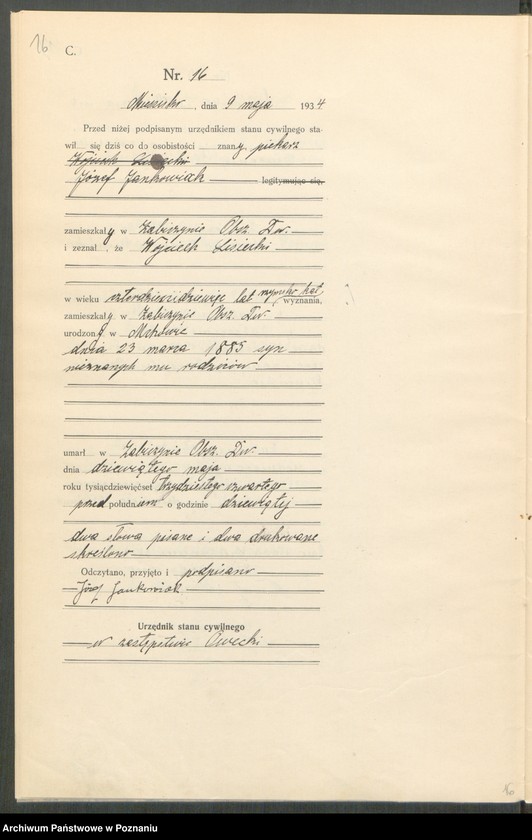 16
C.
Nr. 16
dnia 9 maja 1934
Przed niżej podpisanym urzędnikiem stanu cywilnego sta-
wił się dziś co do osobistości znany, piekarz
Wojciech Lisiecki
Józef Jankowiak legitymując się,
zamieszkały w Zaleszynie Obsz. Dw.
i zeznał, że Wojciech Lisiecki
w wieku czterdzieścidziewięć lat rzymsko kat. wyznania,
zamieszkały w Obsz. Dw.
urodzony w
dnia 23 marca 1885 syn
nieznanych mu rodziców
umarł w Obsz. Dw.
dnia dziewiątego maja
roku tysiącdziewięćset trzydziestego czwartego
przed południem o godzinie dziewiątej
dwa słowa pisane i dwa drukowane
skreślono
Odczytano, przyjęto i podpisano
Józef Jankowiak
Urzędnik stanu cywilnego
w zastępstwie
16
Archiwum Państwowe w Poznaniu